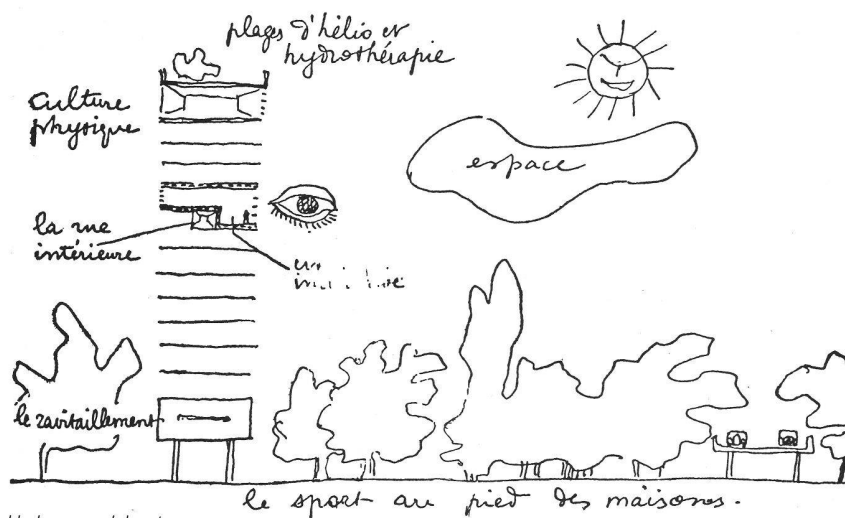 plages d'hélio et
hydrothérapie
culture
physique
espace
la rue
intérieure
un
le ravitaillement
le sport au pied des maisons.